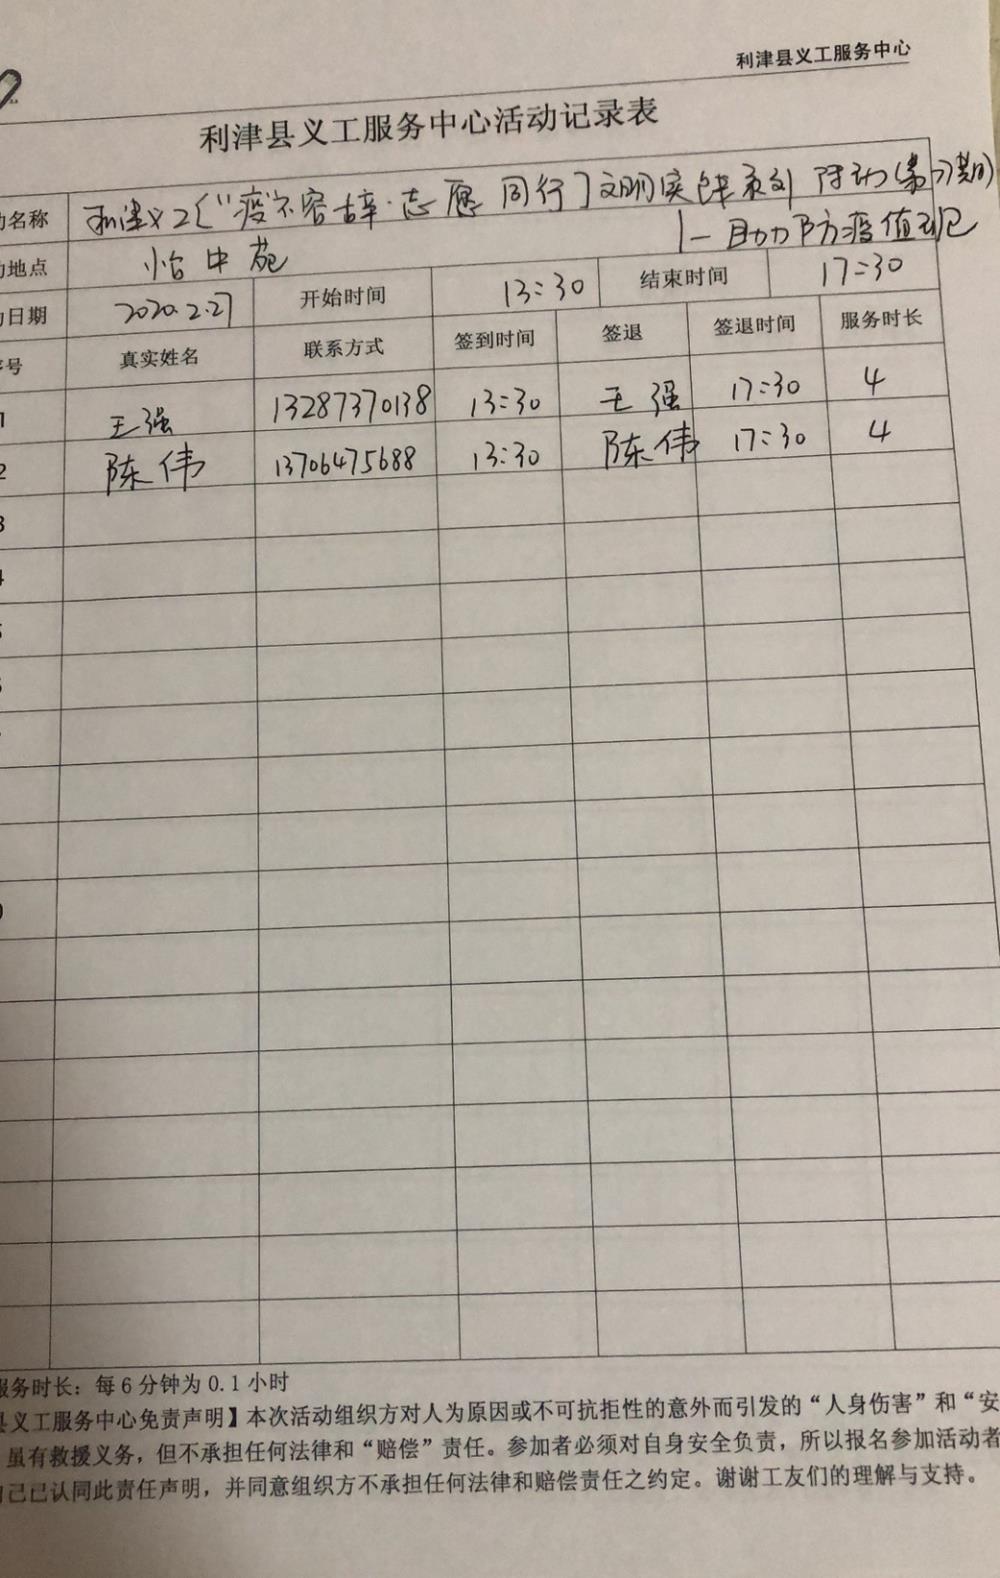 利津县义工服务中心
利津县义工服务中心活动记录表
动名称 利津义工〔“疫”不容辞·志愿同行〕文明实践系列活动
—助力防疫值班
地点 怡中苑
日期 2020.2.27 开始时间 13:30 结束时间 17:30
号 真实姓名 联系方式 签到时间 签退 签退时间 服务时长
1 王强 13287370138 13:30 王强 17:30 4
2 陈伟 13706475688 13:30 陈伟 17:30 4
3
4
5
服务时长：每6分钟为0.1小时
县义工服务中心免责声明】本次活动组织方对人为原因或不可抗拒性的意外而引发的“人身伤害”和“安
虽有救援义务，但不承担任何法律和“赔偿”责任。参加者必须对自身安全负责，所以报名参加活动者
己已认同此责任声明，并同意组织方不承担任何法律和赔偿责任之约定。谢谢工友们的理解与支持。